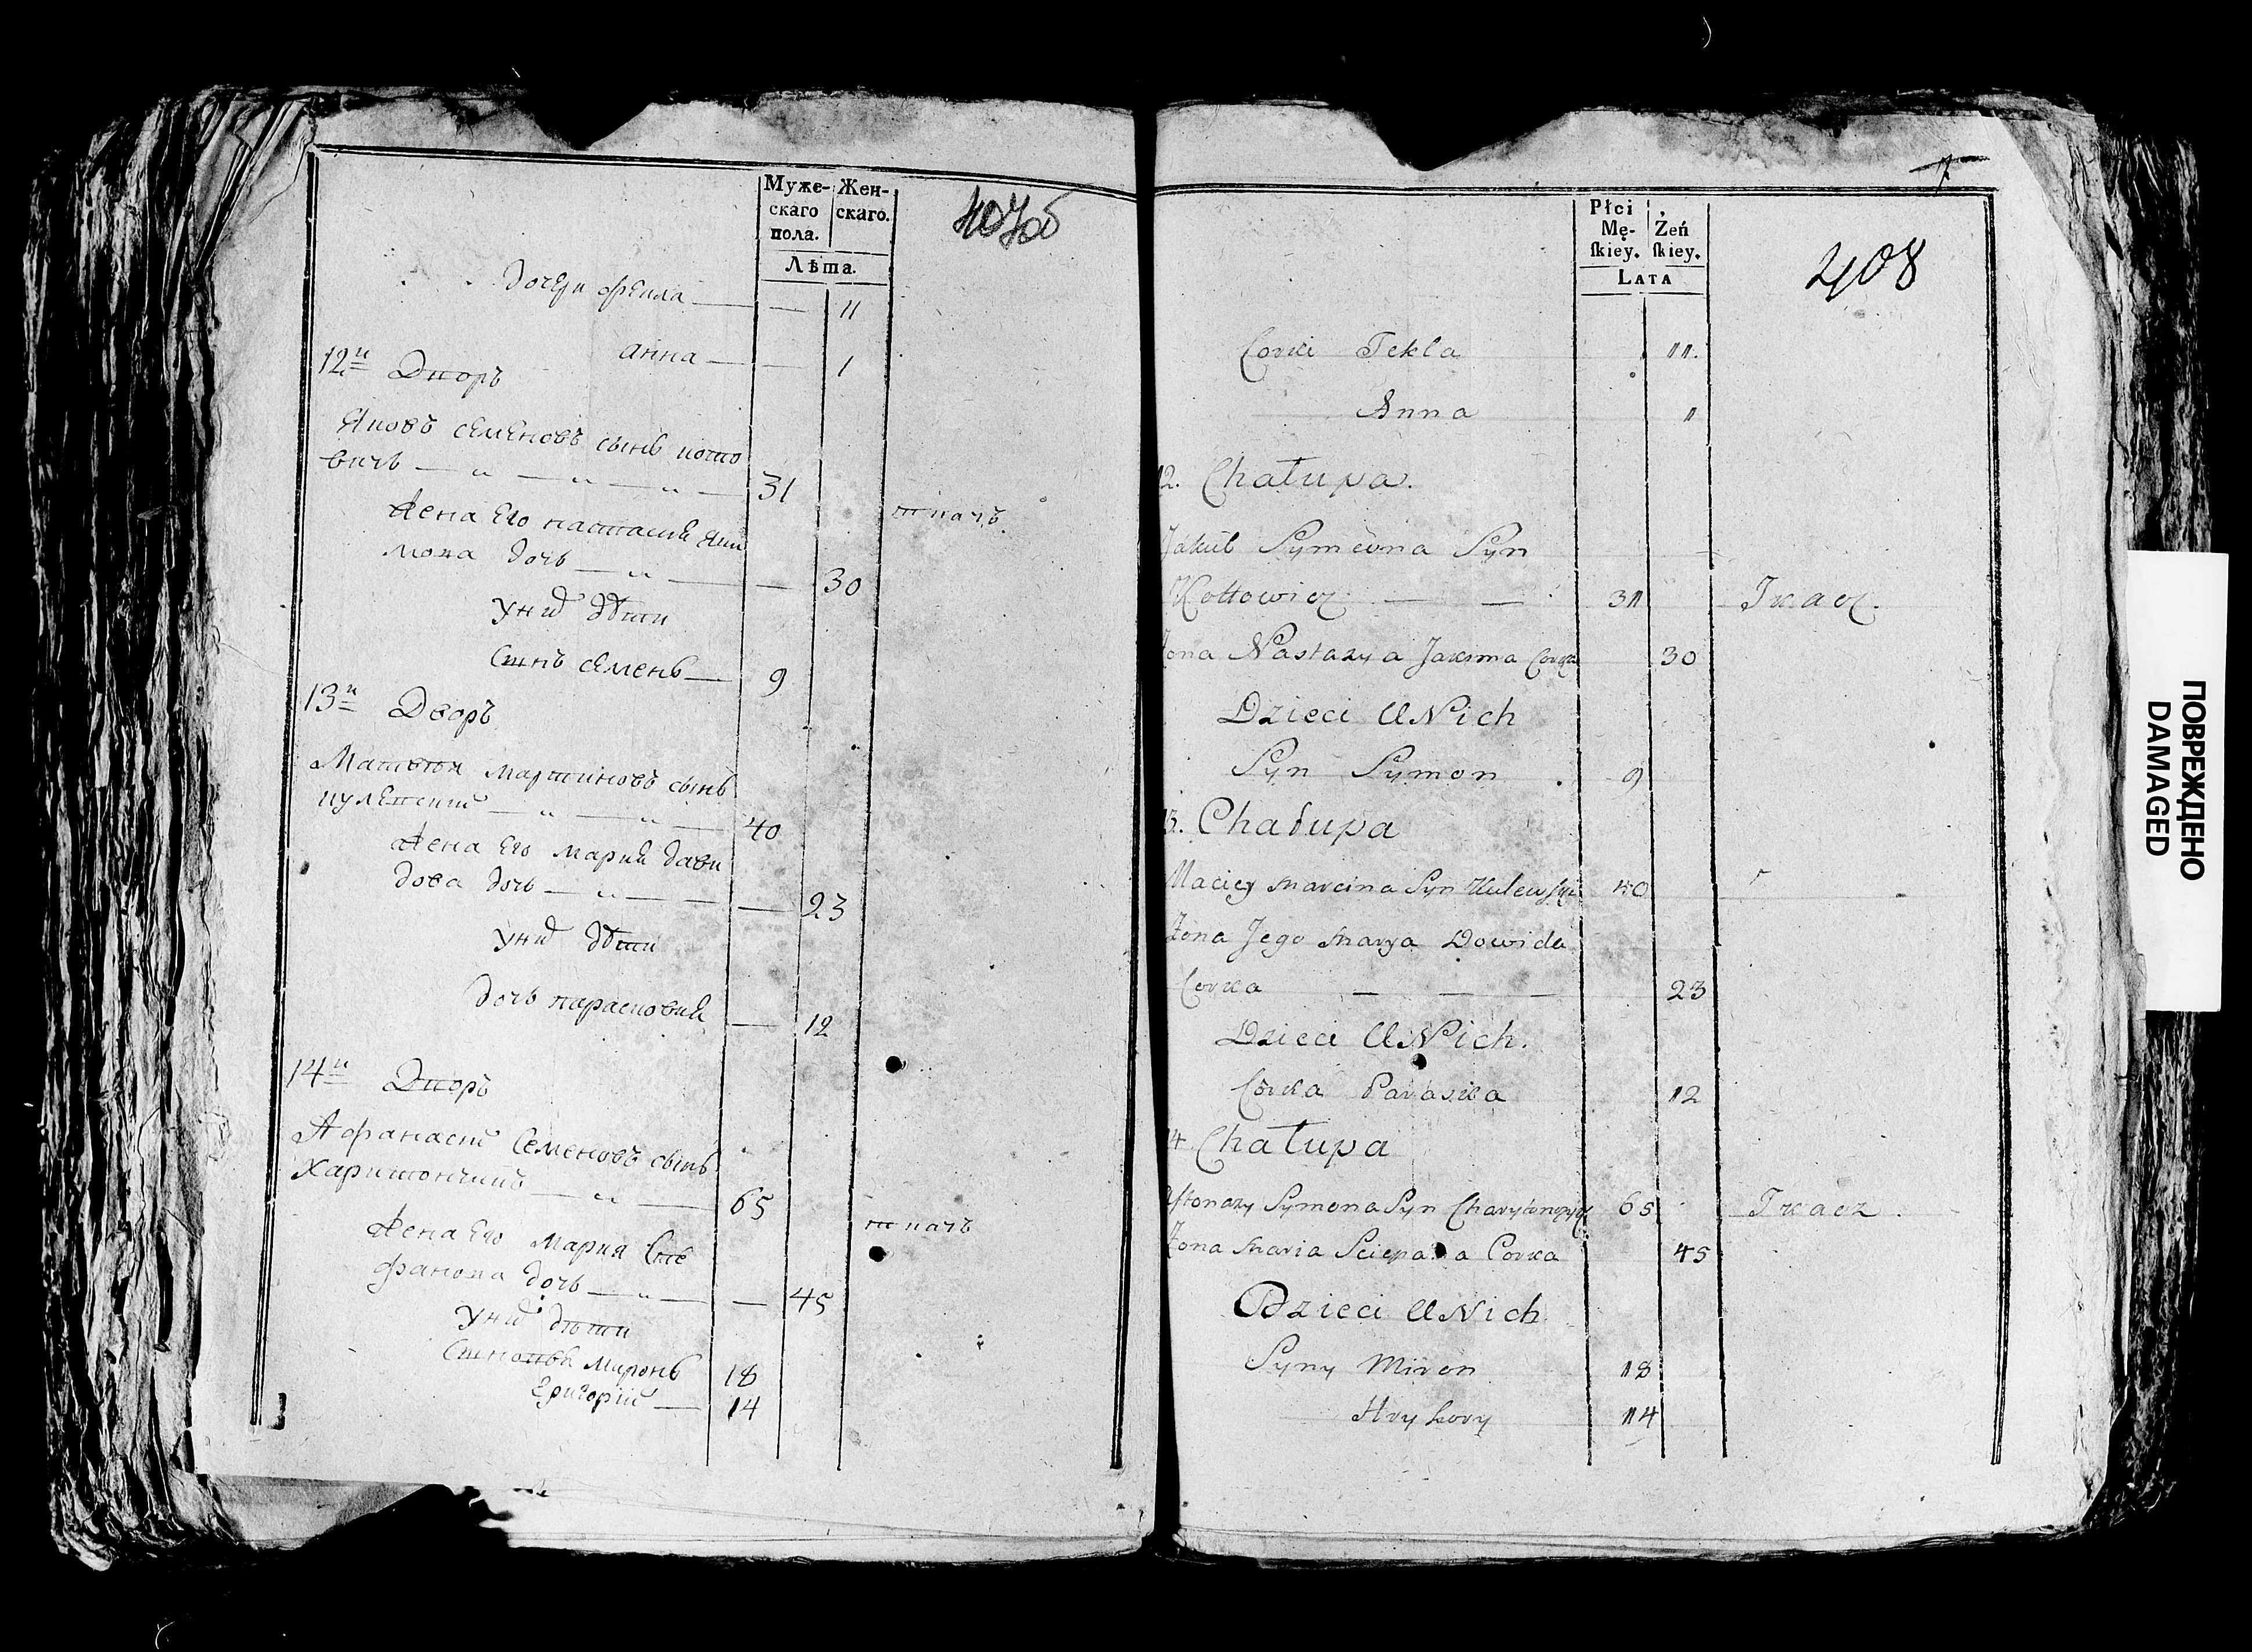 Муже-
скаго
пола.
Жен-
скаго.
Лѣта.
407об
дочери фекла — — 11
анна — — 1
12й Дворъ
Яковъ семеновъ сынъ кото
вичъ — „ — „ — „ — 31
ткачъ
жена Его настасия Яки
мова дочь — „ — — 30
у них дѣти
Сынъ семенъ — 9
13й Дворъ
Матвѣй мартиновъ сынъ
кулевский — „ — „ — 40
жена Его мария дави
дова дочь — „ — — — 23
у них дѣти
дочь парасковия — 12
14й Дворъ
Афанасий Семеновъ сынъ
Харитончикъ — „ — 65
ткачъ
жена Его мария Сте
фанова дочь — „ — — 45
у них дѣти
Сыновья миронъ 18
григорий — 14
Płci
Mę-
ſkiey.
Żeń
ſkiey.
LATA
408
Corki Tekla 11.
Anna 1
12. Chałupa.
Jakub Symeona Syn
Kottowicz — — 31 Tkacz.
Zona Nastazya Jakima Corka 30
Dzieci U Nich
Syn Symon 9
13. Chałupa
Maciey Marcina Syn Kulewski 40
Zona Jego Marya Dowida
Corka — — — 23
Dzieci U Nich.
Córka Paraska 12
14 Chałupa
Aftonazy Symona Syn Charytonczyk 65 Tkacz.
Zona Maria Sciepana Corka 45
Dzieci U Nich
Syny Miron 18
Hryhory 14
ПОВРЕЖДЕНО
DAMAGED